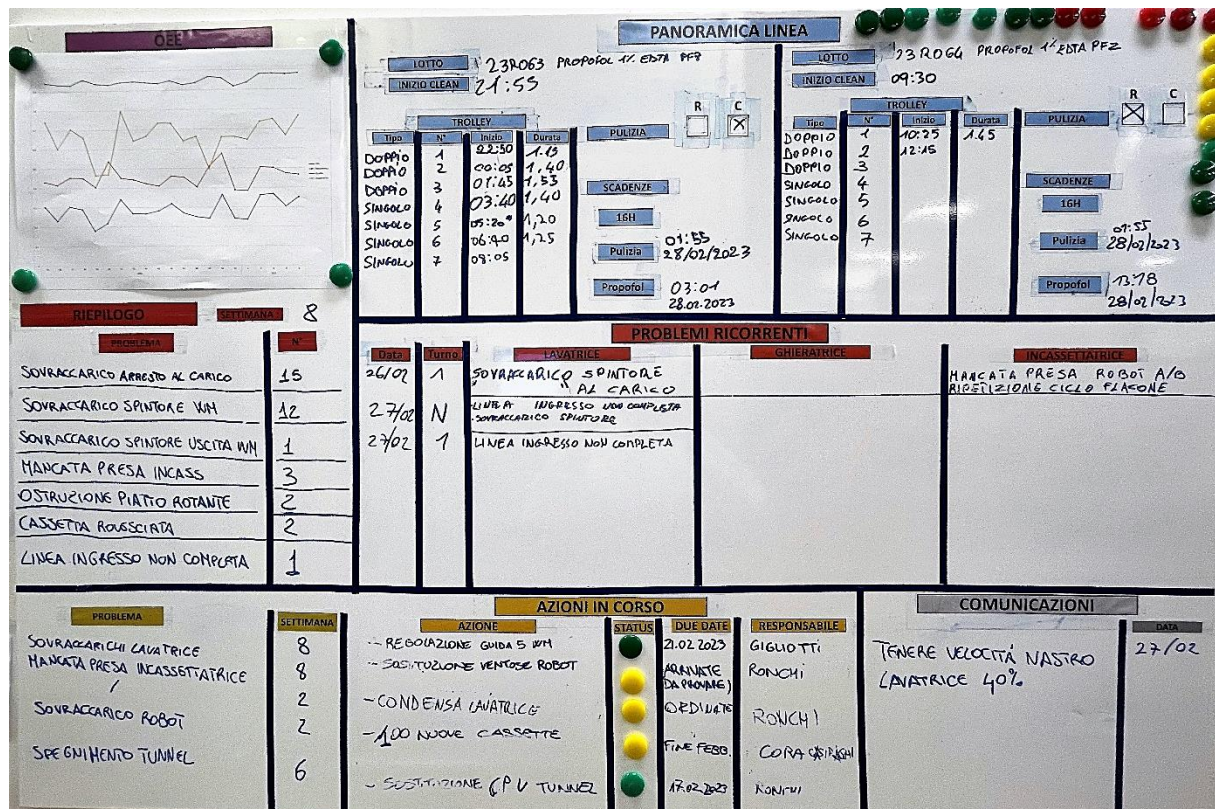 OEE
PANORAMICA LINEA
LOTTO 23R063 PROPOFOL 1% EDTA
INIZIO CLEAN 21:55
R C
TROLLEY
Tipo N° Inizio Durata PULIZIA
DOPPIO 1 22:50 1.15
DOPPIO 2 00:05 1,40
DOPPIO 3 01:45 1,53
SINGOLO 4 03:40 1,40
SINGOLO 5 05:20 1,20
SINGOLO 6 06:40 1,25
SINGOLO 7 08:05
SCADENZE
16H
Pulizia 01:55
28/02/2023
Propofol 03:01
28.02.2023
LOTTO 23R064 PROPOFOL 1% EDTA PFZ
INIZIO CLEAN 09:30
R C
TROLLEY
Tipo N° Inizio Durata PULIZIA
DOPPIO 1 10:25 1.45
DOPPIO 2 12:15
DOPPIO 3
SINGOLO 4
SINGOLO 5
SINGOLO 6
SINGOLO 7
SCADENZE
16H
Pulizia 01:55
28/02/2023
Propofol
28/02/2023
RIEPILOGO SETTIMANA 8
PROBLEMA N°
SOVRACCARICO ARRESTO AL CARICO 15
SOVRACCARICO SPINTORE WM 12
SOVRACCARICO SPINTORE USCITA WM 1
MANCATA PRESA INCASS 3
OSTRUZIONE PIATTO ROTANTE 2
CASSETTA ROVESCIATA 2
LINEA INGRESSO NON COMPLETA 1
PROBLEMI RICORRENTI
Data Turno LAVATRICE GHIERATRICE INCASSETTATRICE
26/02 1 SOVRACCARICO SPINTORE
" " AL CARICO
27/02 N -LINEA INGRESSO NON COMPLETA
-SOVRACCARICO SPINTORE
27/02 1 LINEA INGRESSO NON COMPLETA
MANCATA PRESA ROBOT A/B
RIPETIZIONE CICLO FLACONE
AZIONI IN CORSO
PROBLEMA SETTIMANA AZIONE STATUS DUE DATE RESPONSABILE
SOVRACCARICHI LAVATRICE 8 - REGOLAZIONE GUIDA 5 WM 21.02.2023 GIGLIOTTI
MANCATA PRESA INCASSETTATRICE 8 - SOSTITUZIONE VENTOSE ROBOT ARRIVATE RONCHI
DA PROVARE)
/ 2 - CONDENSA LAVATRICE ORDINATE RONCHI
SOVRACCARICO ROBOT 2 - 100 NUOVE CASSETTE FINE FEBB. CORA
SPEGNIMENTO TUNNEL 6 - SOSTITUZIONE CPU TUNNEL 17.02.2023 RONCHI
COMUNICAZIONI
DATA
TENERE VELOCITÀ NASTRO 27/02
LAVATRICE 40%